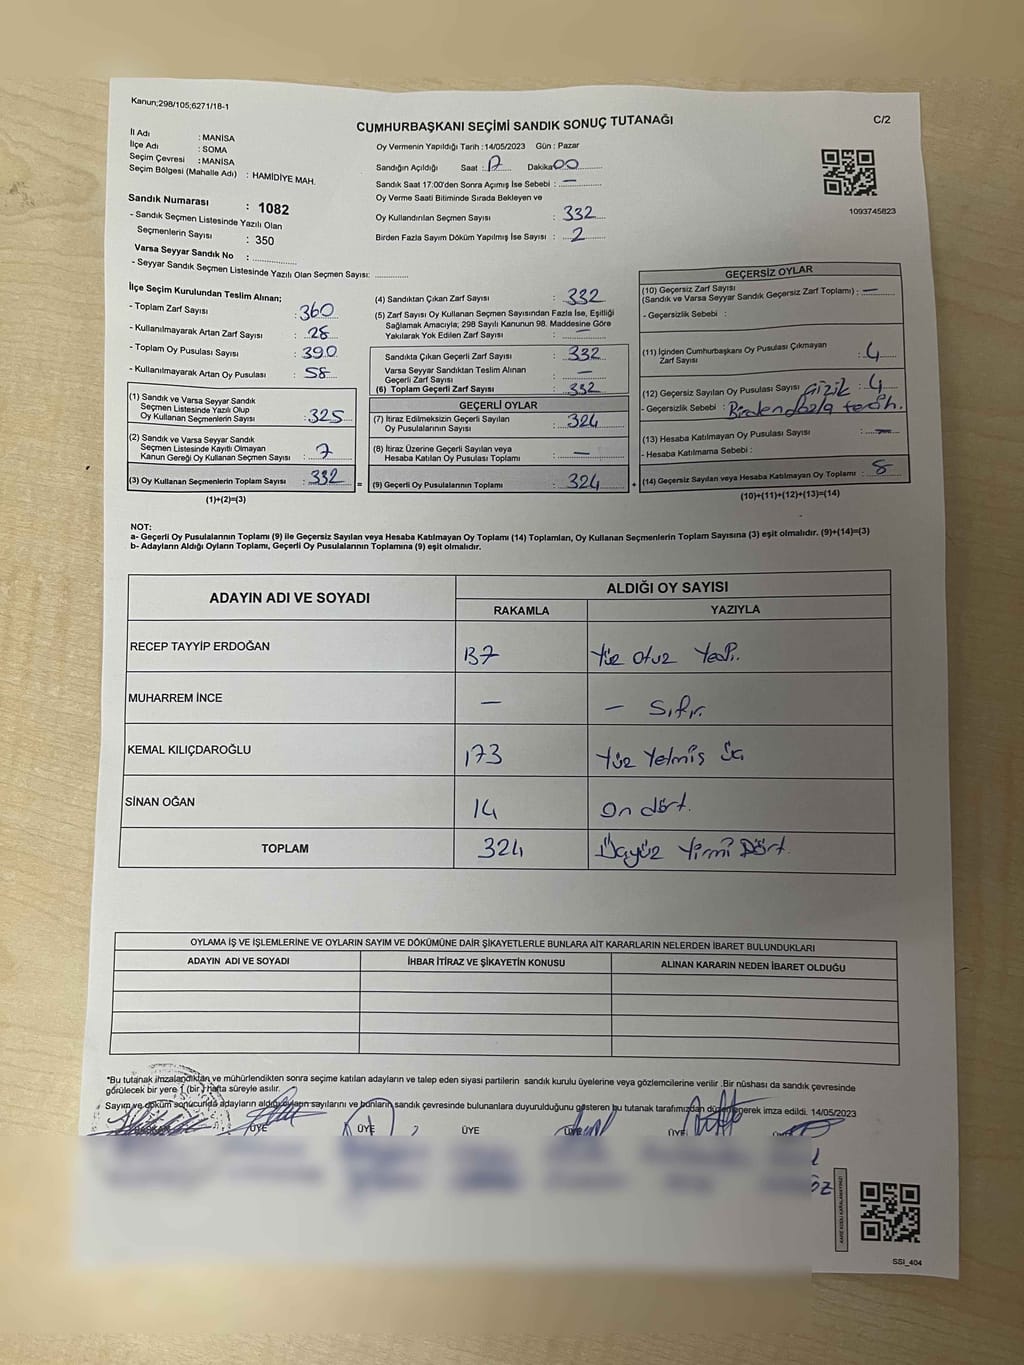 Kanun;298/105;6271/18-1
CUMHURBAŞKANI SEÇİMİ SANDIK SONUÇ TUTANAĞI
C/2
İl Adı : MANİSA
İlçe Adı : SOMA
Seçim Çevresi : MANİSA
Seçim Bölgesi (Mahalle Adı) : HAMİDİYE MAH.
Sandık Numarası : 1082
- Sandık Seçmen Listesinde Yazılı Olan
Seçmenlerin Sayısı : 350
Varsa Seyyar Sandık No :
- Seyyar Sandık Seçmen Listesinde Yazılı Olan Seçmen Sayısı:
Oy Vermenin Yapıldığı Tarih : 14/05/2023 Gün : Pazar
Sandığın Açıldığı Saat : 17 Dakika 00
Sandık Saat 17:00'den Sonra Açımış İse Sebebi : —
Oy Verme Saati Bitiminde Sırada Bekleyen ve
Oy Kullandırılan Seçmen Sayısı : 332
Birden Fazla Sayım Döküm Yapılmış İse Sayısı : 2
1093745823
İlçe Seçim Kurulundan Teslim Alınan;
- Toplam Zarf Sayısı : 360
- Kullanılmayarak Artan Zarf Sayısı : 28
- Toplam Oy Pusulası Sayısı : 390
- Kullanılmayarak Artan Oy Pusulası : 58
(1) Sandık ve Varsa Seyyar Sandık
Seçmen Listesinde Yazılı Olup
Oy Kullanan Seçmenlerin Sayısı : 325
(2) Sandık ve Varsa Seyyar Sandık
Seçmen Listesinde Kayıtlı Olmayan
Kanun Gereği Oy Kullanan Seçmen Sayısı : 7
(3) Oy Kullanan Seçmenlerin Toplam Sayısı : 332 =
(1)+(2)=(3)
(4) Sandıktan Çıkan Zarf Sayısı : 332
(5) Zarf Sayısı Oy Kullanan Seçmen Sayısından Fazla İse, Eşitliği
Sağlamak Amacıyla; 298 Sayılı Kanunun 98. Maddesine Göre
Yakılarak Yok Edilen Zarf Sayısı : —
Sandıkta Çıkan Geçerli Zarf Sayısı : 332
Varsa Seyyar Sandıktan Teslim Alınan
Geçerli Zarf Sayısı : —
(6) Toplam Geçerli Zarf Sayısı : 332
GEÇERLİ OYLAR
(7) İtiraz Edilmeksizin Geçerli Sayılan
Oy Pusulalarının Sayısı : 324
(8) İtiraz Üzerine Geçerli Sayılan veya
Hesaba Katılan Oy Pusulası Toplamı : —
(9) Geçerli Oy Pusulalarının Toplamı : 324 +
GEÇERSİZ OYLAR
(10) Geçersiz Zarf Sayısı
(Sandık ve Varsa Seyyar Sandık Geçersiz Zarf Toplamı) : —
- Geçersizlik Sebebi :
(11) İçinden Cumhurbaşkanı Oy Pusulası Çıkmayan
Zarf Sayısı : 4
(12) Geçersiz Sayılan Oy Pusulası Sayısı : 4
- Geçersizlik Sebebi : Birden fazla tercih.
(13) Hesaba Katılmayan Oy Pusulası Sayısı : —
- Hesaba Katılmama Sebebi :
(14) Geçersiz Sayılan veya Hesaba Katılmayan Oy Toplamı : 8
(10)+(11)+(12)+(13)=(14)
NOT:
a- Geçerli Oy Pusulalarının Toplamı (9) ile Geçersiz Sayılan veya Hesaba Katılmayan Oy Toplamı (14) Toplamları, Oy Kullanan Seçmenlerin Toplam Sayısına (3) eşit olmalıdır. (9)+(14)=(3)
b- Adayların Aldığı Oyların Toplamı, Geçerli Oy Pusulalarının Toplamına (9) eşit olmalıdır.
ADAYIN ADI VE SOYADI
ALDIĞI OY SAYISI
RAKAMLA YAZIYLA
RECEP TAYYİP ERDOĞAN 137 Yüz Otuz Yedi.
MUHARREM İNCE — — Sıfır.
KEMAL KILIÇDAROĞLU 173 Yüz Yetmiş Üç
SİNAN OĞAN 14 On dört.
TOPLAM 324 Üçyüz Yirmi Dört.
OYLAMA İŞ VE İŞLEMLERİNE VE OYLARIN SAYIM VE DÖKÜMÜNE DAİR ŞİKAYETLERLE BUNLARA AİT KARARLARIN NELERDEN İBARET BULUNDUKLARI
ADAYIN ADI VE SOYADI İHBAR İTİRAZ VE ŞİKAYETİN KONUSU ALINAN KARARIN NEDEN İBARET OLDUĞU
*Bu tutanak imzalandıktan ve mühürlendikten sonra seçime katılan adayların ve talep eden siyasi partilerin sandık kurulu üyelerine veya gözlemcilerine verilir .Bir nüshası da sandık çevresinde
görülecek bir yere 1 (bir) hafta süreyle asılır.
Sayım ve döküm sonucunda adayların aldığı oyların sayılarını ve bunların sandık çevresinde bulunanlara duyurulduğunu gösteren bu tutanak tarafımızdan düzenlenerek imza edildi. 14/05/2023
BAŞKAN ÜYE ÜYE ÜYE ÜYE ÜYE ÜYE
SSI_404